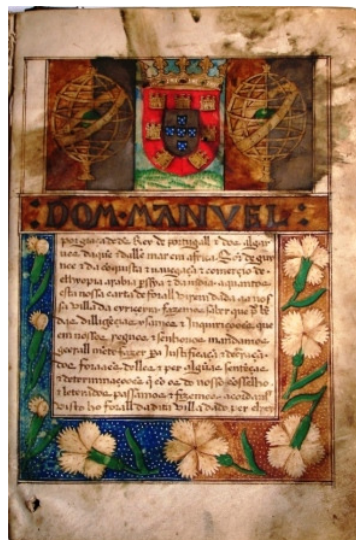 : DOM · MANVEL :
por graça de ds Rey de portugall & dos algar
ues daquē & dalē mar em africa Sōr de guy
nee & da conquista & navegaçã & comercio de
ethyopia arabia persya & da india. a quantos
esta nossa carta de forall dada aa nos
sa villa da eryceyra fazemos saber que
dilligēcias &
em nossos regnos & senhorios mandamos
geerall mēte fazer pa Justificaçã & decraçã
dos foraees delles & per algūas sentēças
& determinaçoes q cō os do nosso cōsselho
& leterados passamos & fezemos acordamos
visto ho forall da dita villa dado per